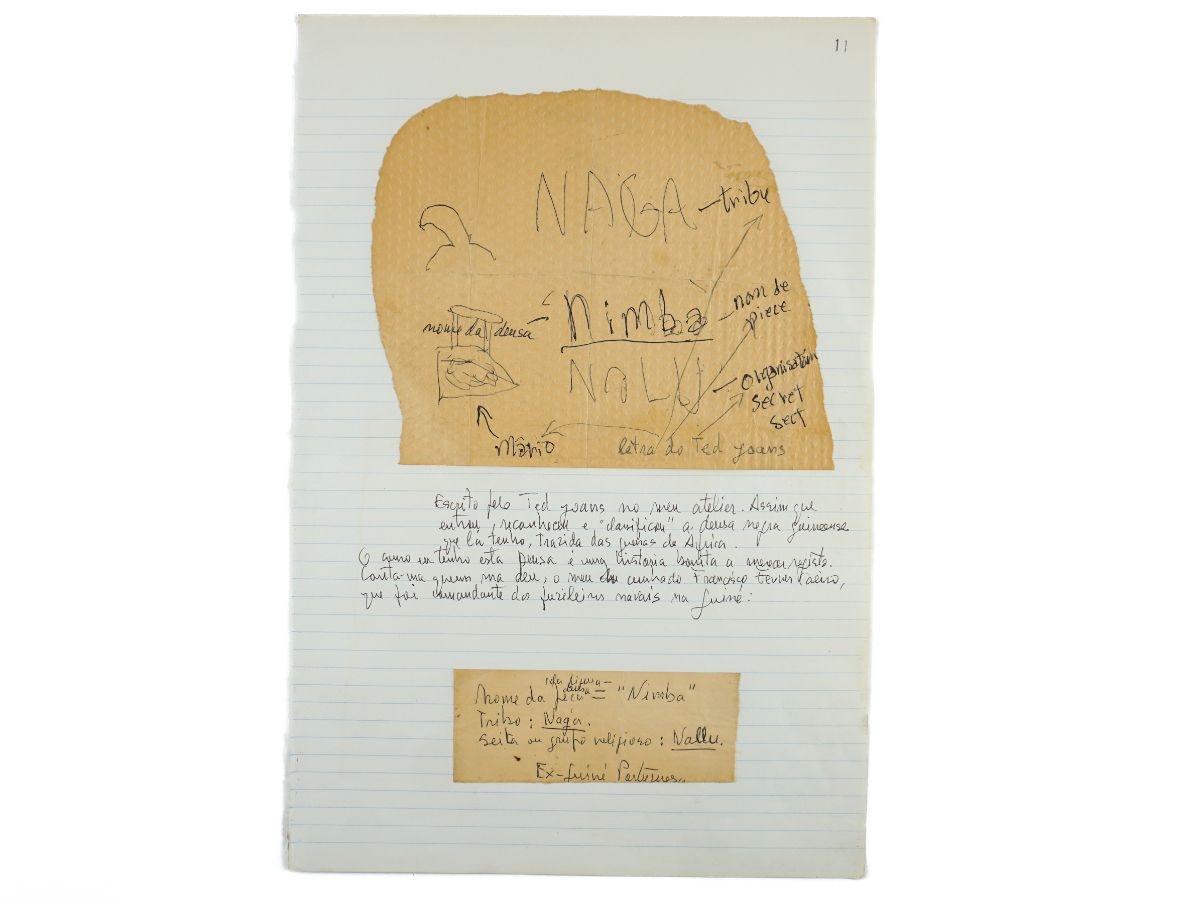 11
NAGA — tribu
nome da deusa
Nimba — nom de
piece
NALU — organisation
secret
sect
Mário
letra do Ted Joans
Escrito pelo Ted Joans no meu atelier. Assim que
entrou, reconheceu e "classificou" a deusa negra guineense
que lá tenho, trazida das guerras de África.
O como eu tenho esta deusa é uma história bonita a merecer registo.
Conta-ma quem ma deu, o meu cunhado Francisco
que foi comandante dos fuzileiros navais na Guiné:
deusa
Nome da peça = "Nimba"
Tribo : Naga.
Seita ou grupo religioso : Nallu.
Ex-Guiné Portuguesa